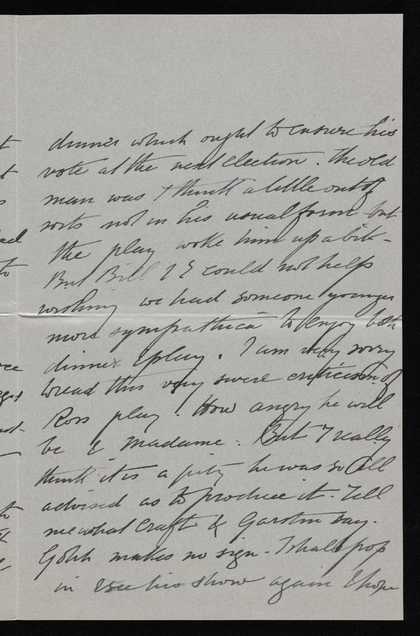 dinner which ought to ensure his
vote at the next election. The old
man was I think a little out of
sorts not in his usual form but
the play woke him up a bit -
But Bill & I could not help
wishing we had someone younger
more sympathica to enjoy both
dinner & play. I am very sorry
to read this very severe criticism of
Ross play. How angry he will
be & Madame. But I really
think it is a pity he was so ill
advised as to produce it. Tell
me what Craft & Garstin say.
makes no sign - I shall pop
in & see his show again I hope